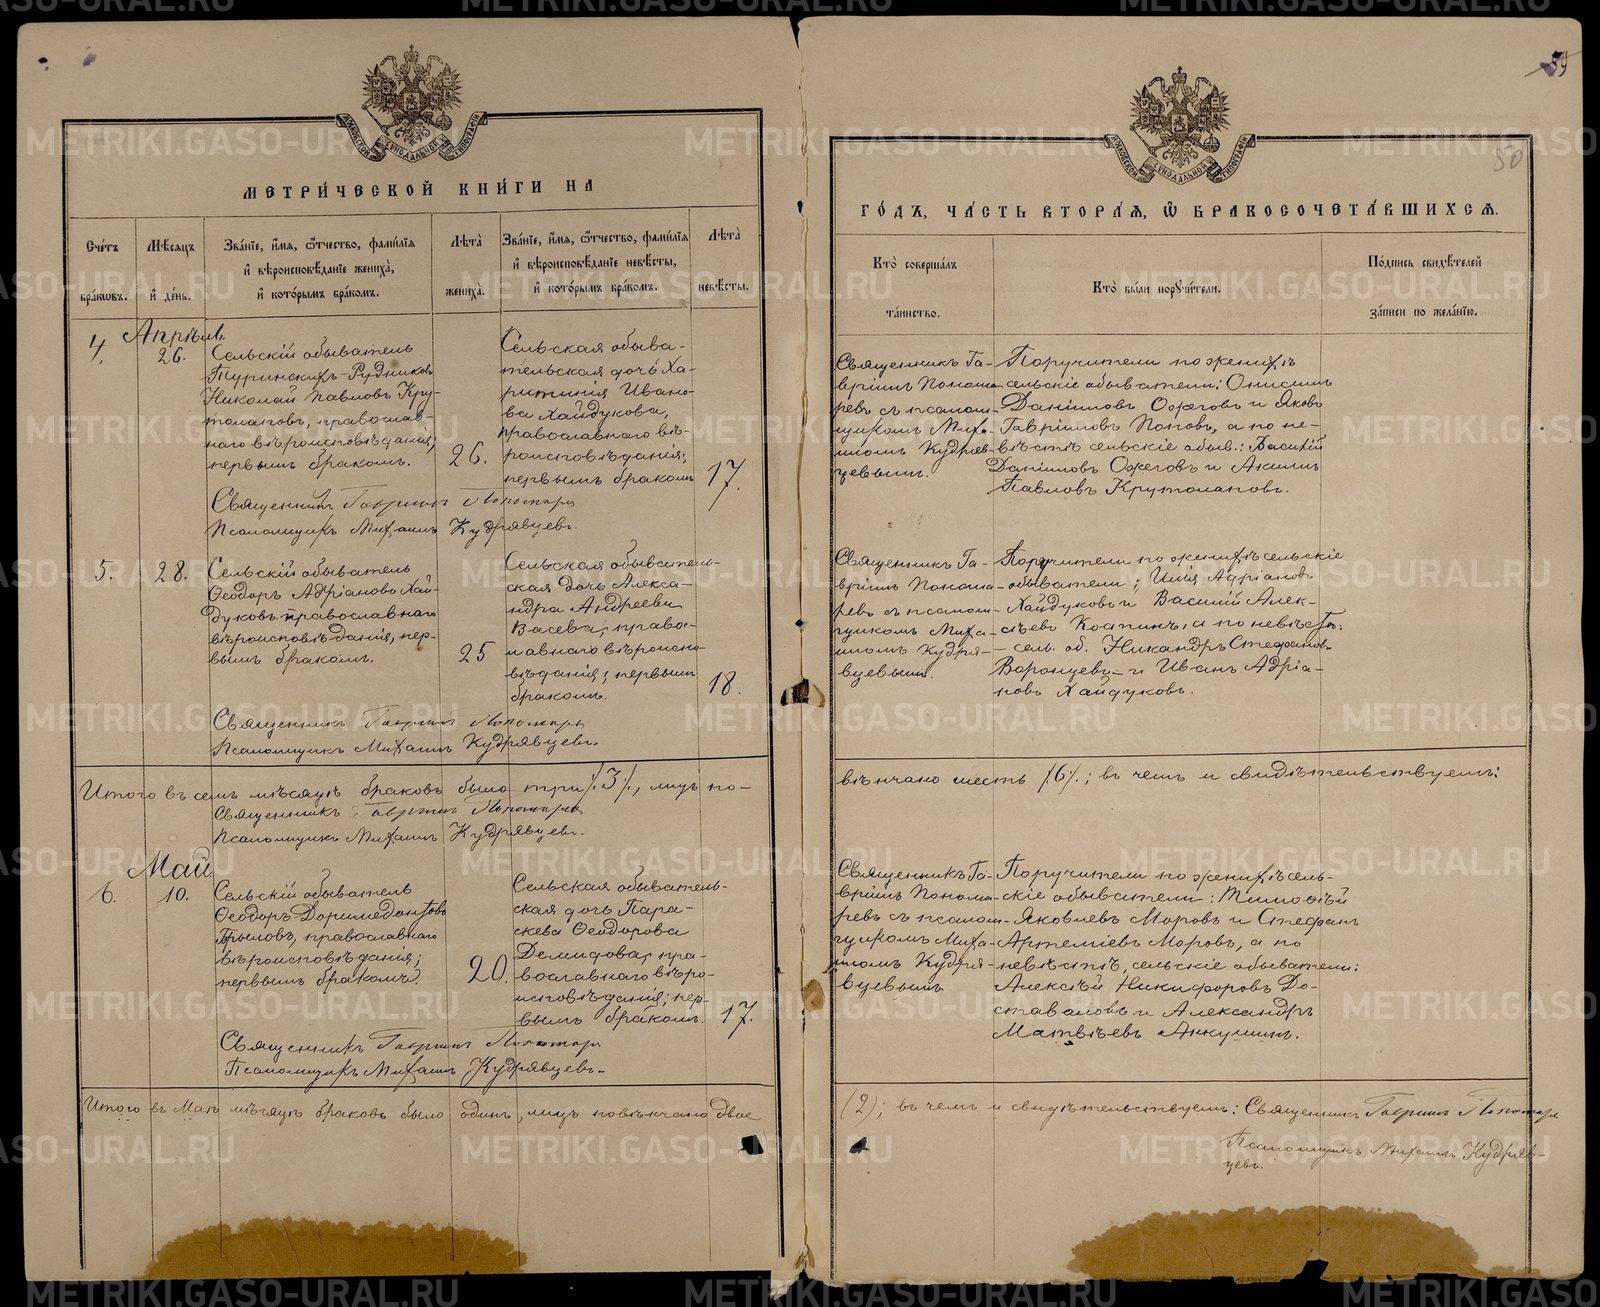 МЕТРИ́ЧЕСКОЙ КНИ́ГИ НА
Сче́тъ бра́ковъ.
Мѣ́сяцъ и҆ де́нь.
Зва́нїе, и҆́мя, ѻ҆́тчество, фами́лїя и҆ вѣроисповѣ́данїе жениха̀, и҆ кото́рымъ бра́комъ.
Лѣ́та жениха̀.
Зва́нїе, и҆́мя, ѻ҆́тчество, фами́лїя и҆ вѣроисповѣ́данїе невѣ́сты, и҆ кото́рымъ бра́комъ.
Лѣ́та невѣ́сты.
4.
Апрѣль
26.
Сельскій обыватель
Туринскихъ-Рудниковъ
Николай Павловъ Кру-
толаповъ, православ-
наго вѣроисповѣданія;
первымъ бракомъ.
26.
Сельская обыва-
тельская дочь Ха-
ритинія Ивано-
ва Хайдукова,
православнаго вѣ-
роисповѣданія;
первымъ бракомъ
17.
Священникъ Гавріилъ Пономаревъ
Псаломщикъ Михаилъ Кудрявцевъ.
5.
28.
Сельскій обыватель
Ѳеодоръ Адріановъ Хай-
дуковъ православнаго
вѣроисповѣданія, пер-
вымъ бракомъ.
25
Сельская обыватель-
ская дочь Алекса-
ндра Андреева
Васева; право-
славнаго вѣроиспо-
вѣданія; первымъ
бракомъ.
18.
Священникъ Гавріилъ Пономаревъ
Псаломщикъ Михаилъ Кудрявцевъ.
Итого въ семъ мѣсяцѣ браковъ было три /3/, лицъ по-
Священникъ Гавріилъ Пономаревъ
Псаломщикъ Михаилъ Кудрявцевъ.
Май
6.
10.
Сельскій обыватель
Ѳеодоръ Доримедонтовъ
Брыловъ, православнаго
вѣроисповѣданія;
первымъ бракомъ.
20.
Сельская обыватель-
ская дочь Пара-
скева Ѳеодорова
Демидова, пра-
вославнаго вѣро-
исповѣданія; пер-
вымъ бракомъ.
17.
Священникъ Гавріилъ Пономаревъ
Псаломщикъ Михаилъ Кудрявцевъ.
Итого въ Маѣ мѣсяцѣ браковъ было одинъ, лицъ повѣнчано двое
59
50
ГО́ДЪ, ЧА́СТЬ ВТОРА́Я, Ѽ БРАКОСОЧЕТА́ВШИХСЯ.
Кто̀ соверша́лъ та́инство.
Кто̀ бы́ли порꙋчи́тели.
По́дпись свидѣ́телей за́писи по жела́нїю.
Священникъ Га-
вріилъ Понома-
ревъ съ псалом-
щикомъ Миха-
иломъ Кудряв-
цевымъ.
Поручители по женихѣ
сельскіе обыватели: Онисимъ
Даніиловъ Ожеговъ и Яковъ
Гавріиловъ Поповъ, а по не-
вѣстѣ сельскіе обыв.: Василій
Даніиловъ Ожеговъ и Акимъ
Павловъ Крутолаповъ.
Священникъ Га-
вріилъ Понома-
ревъ съ псалом-
щикомъ Миха-
иломъ Кудря-
вцевымъ.
Поручители по женихѣ сельскіе
обыватели; Илія Адріановъ
Хайдуковъ и Василій Алек-
сѣевъ Костинъ, а по невѣстѣ:
сель. об. Никандръ Стефановъ
Воронцевъ и Иванъ Адріа-
новъ Хайдуковъ.
вѣнчано шесть /6/.; въ чемъ и свидѣтельствуемъ:
Священникъ Га-
вріилъ Понома-
ревъ съ псалом-
щикомъ Миха-
иломъ Кудря-
вцевымъ
Поручители по женихѣ сель-
скіе обыватели: Тимоѳей
Яковлевъ Моровъ и Стефанъ
Артеміевъ Моровъ, а по
невѣстѣ, сельскіе обыватели:
Алексѣй Никифоровъ До-
стоваловъ и Александръ
Матвѣевъ Анкушинъ.
(2); въ чемъ и свидѣтельствуемъ: Священникъ Гавріилъ Пономаревъ
Псаломщикъ Михаилъ Кудряв-
цевъ.
METRIKI.GASO-URAL.RU